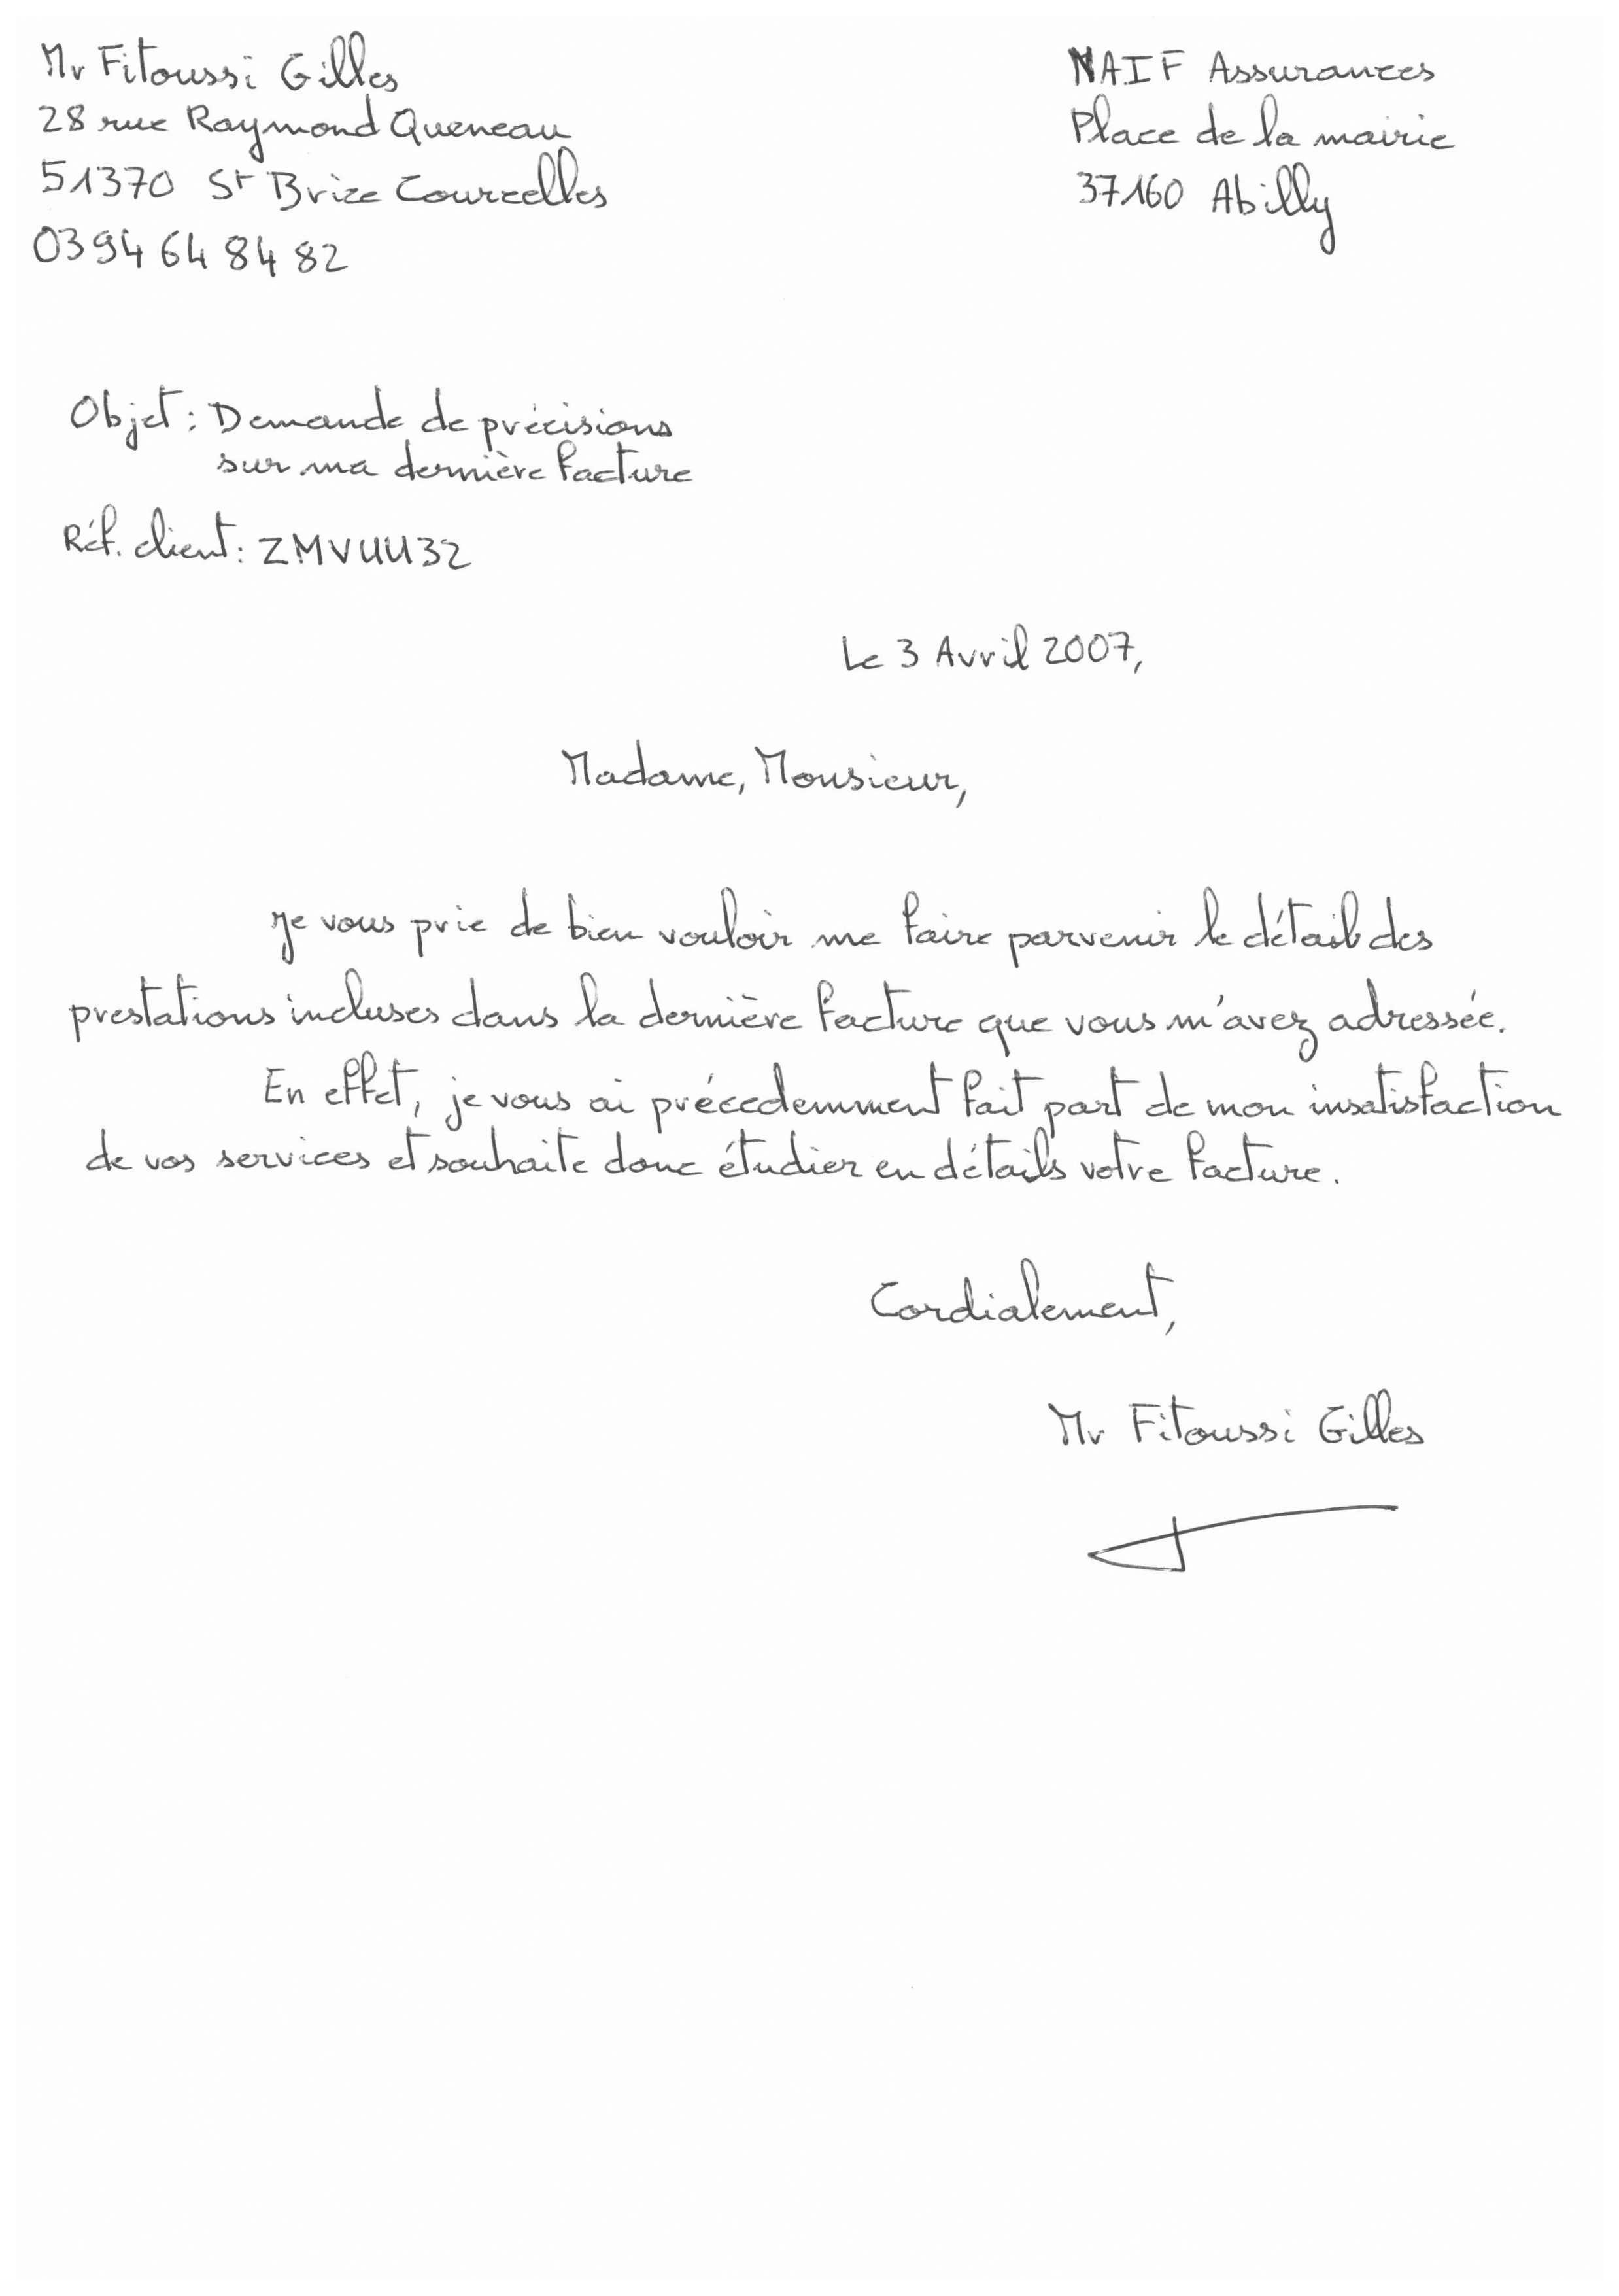 Mr Fitoussi Gilles
28 rue Raymond Queneau
51370 St Brice Courcelles
03 94 64 84 82
NAIF Assurances
Place de la mairie
37160 Abilly
Objet : Demande de précisions
sur ma dernière facture
Réf. client : ZMVUU32
Le 3 Avril 2007,
Madame, Monsieur,
Je vous prie de bien vouloir me faire parvenir le détail des
prestations incluses dans la dernière facture que vous m'avez adressée.
En effet, je vous ai précedemment fait part de mon insatisfaction
de vos services et souhaite donc étudier en détails votre facture.
Cordialement,
Mr Fitoussi Gilles